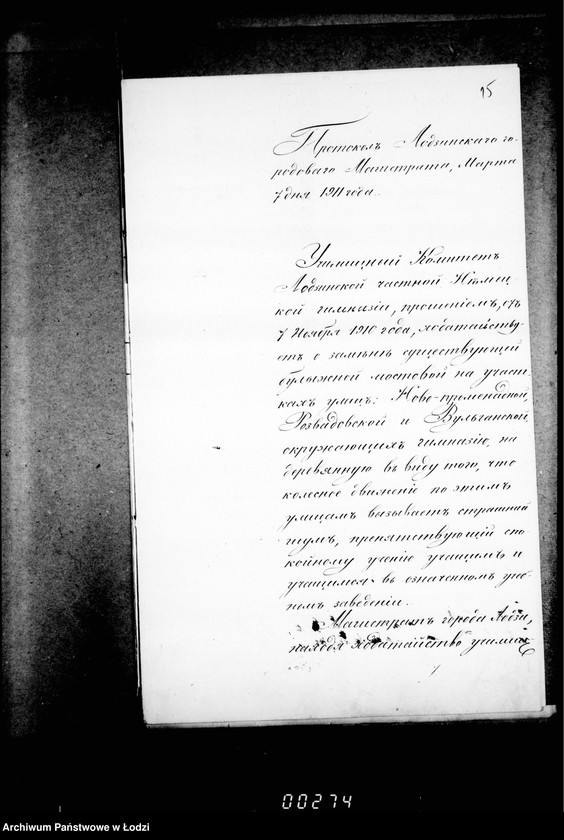 15
Протоколъ Лодзинскаго го-
родоваго Магистрата, Марта
7 дня 1911 года.
Училищный Комитетъ
Лодзинской частной Нѣмец
кой гимназіи, прошеніемъ, отъ
7 Ноября 1910 года, ходатайству-
етъ о замѣнѣ существующей
булыжной мостовой на участ
кахъ улицъ: Ново-променадной,
Розвадовской и Вульчанской,
окружающихъ гимназію, на
деревянную въ виду того, что
колесное движеніе по этимъ
улицамъ вызываетъ страшный
шумъ, препятствующій спо
койному ученію учащимъ и
учащимся въ означенномъ учеб-
номъ заведеніи.
Магистратъ города Лодзи,
находя ходатайство училищ
00274
Archiwum Państwowe w Łodzi